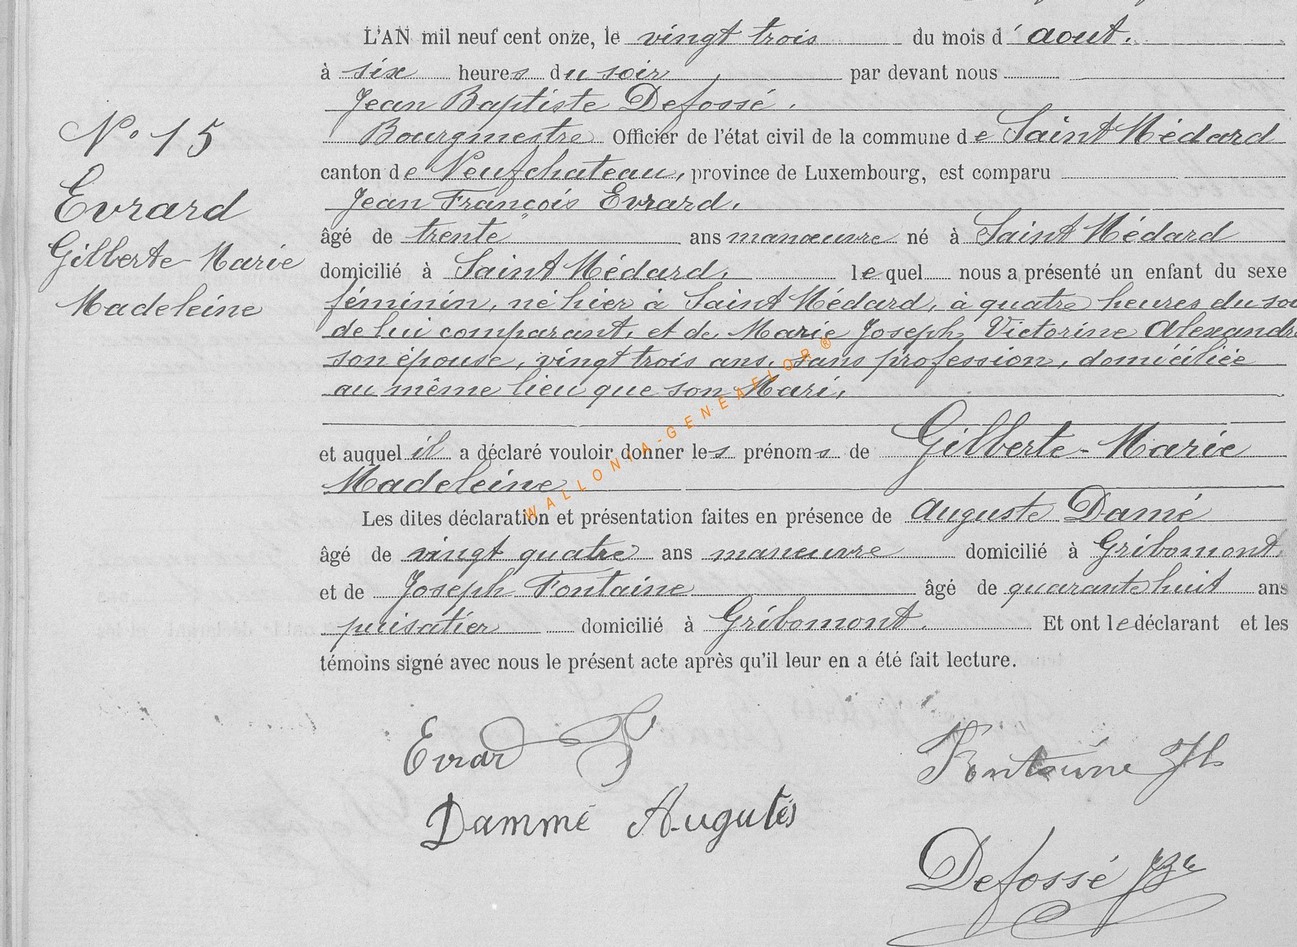 L'AN mil neuf cent onze, le vingt trois du mois d' aout.
à six heures du soir, par devant nous
Jean Baptiste Defossé.
Bourgmestre Officier de l'état civil de la commune de Saint Médard
canton de Neufchateau, province de Luxembourg, est comparu
Jean François Evrard,
âgé de trente ans manœuvre né à Saint Médard
domicilié à Saint Médard, lequel nous a présenté un enfant du sexe
féminin, né hier à Saint Médard, à quatre heures du soi
de lui comparant, et de Marie Joseph, Victorine Alexandre
son épouse, vingt trois ans, sans profession, domiciliée
au même lieu que son Mari,
et auquel il a déclaré vouloir donner les prénoms de Gilberte-Marie
Madeleine
Les dites déclaration et présentation faites en présence de Auguste Damé
âgé de vingt quatre ans maneuvre domicilié à Gribomont,
et de Joseph Fontaine âgé de quarante huit ans
puisatier domicilié à Gribomont. Et ont le déclarant et les
témoins signé avec nous le présent acte après qu'il leur en a été fait lecture.
N° 15
Evrard
Gilberte-Marie
Madeleine
WALLONIA-GENEAFLOR®
Evrard F
Fontaine Jh
Dammé Augutes
Defossé